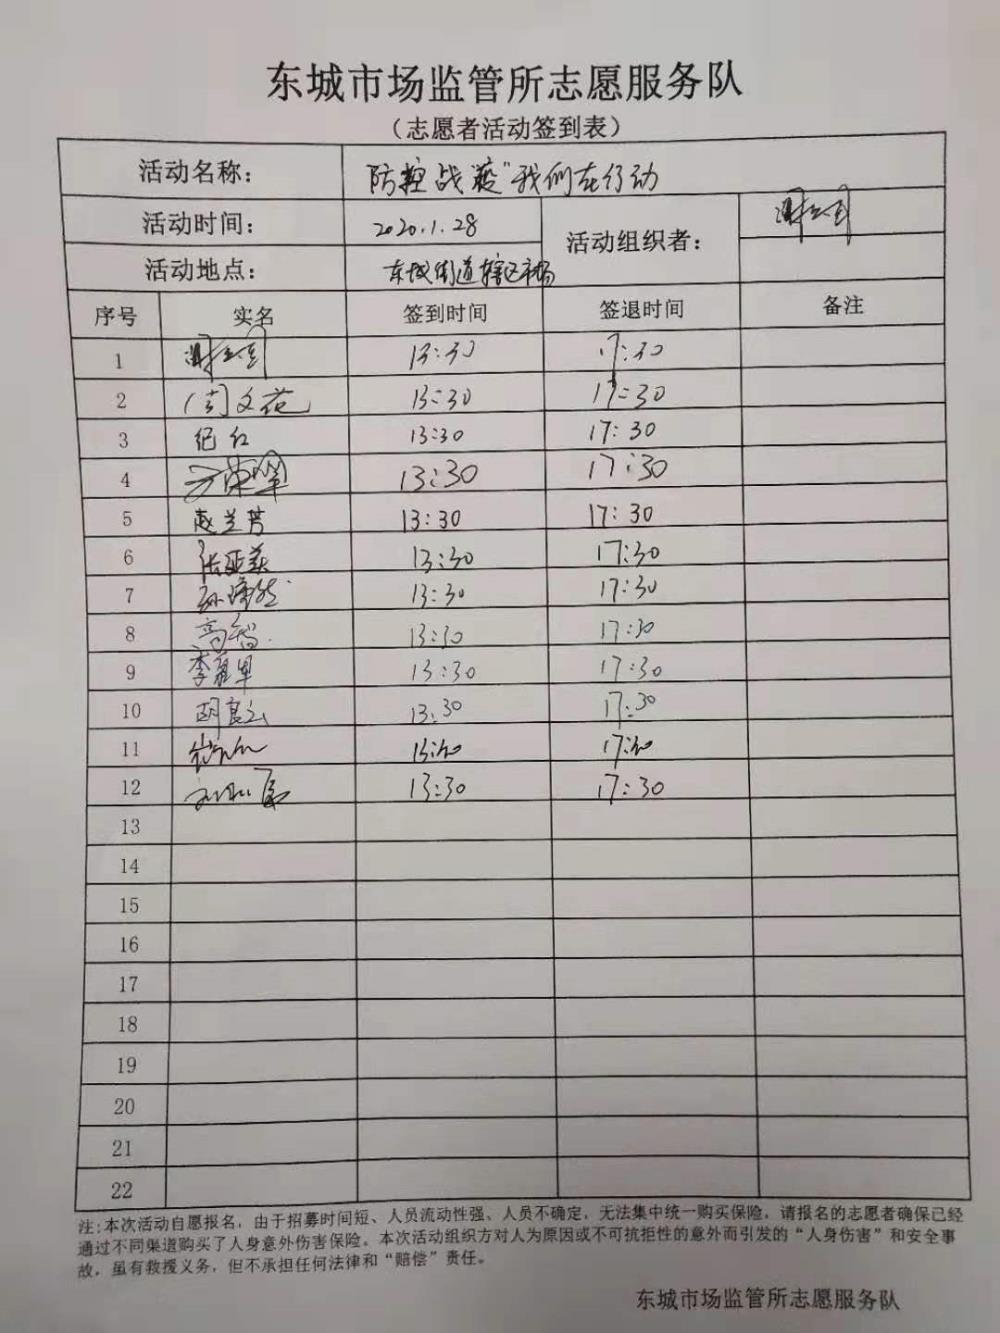 东城市场监管所志愿服务队
（志愿者活动签到表）
活动名称： 防控战疫"我们在行动
活动时间： 2020.1.28 活动组织者：
活动地点： 东城街道辖区市场
序号 实名 签到时间 签退时间 备注
1 13:30 17:30
2 周文花 13:30 17:30
3 纪红 13:30 17:30
4 13:30 17:30
5 赵兰芳 13:30 17:30
6 13:30 17:30
7 13:30 17:30
8 高 13:30 17:30
9 李 13:30 17:30
10 胡良云 13:30 17:30
11 13:30 17:30
12 13:30 17:30
13
14
15
16
17
18
19
20
21
22
注:本次活动自愿报名，由于招募时间短、人员流动性强、人员不确定，无法集中统一购买保险，请报名的志愿者确保已经
通过不同渠道购买了人身意外伤害保险。本次活动组织方对人为原因或不可抗拒性的意外而引发的“人身伤害”和安全事
故，虽有救援义务，但不承担任何法律和“赔偿”责任。
东城市场监管所志愿服务队